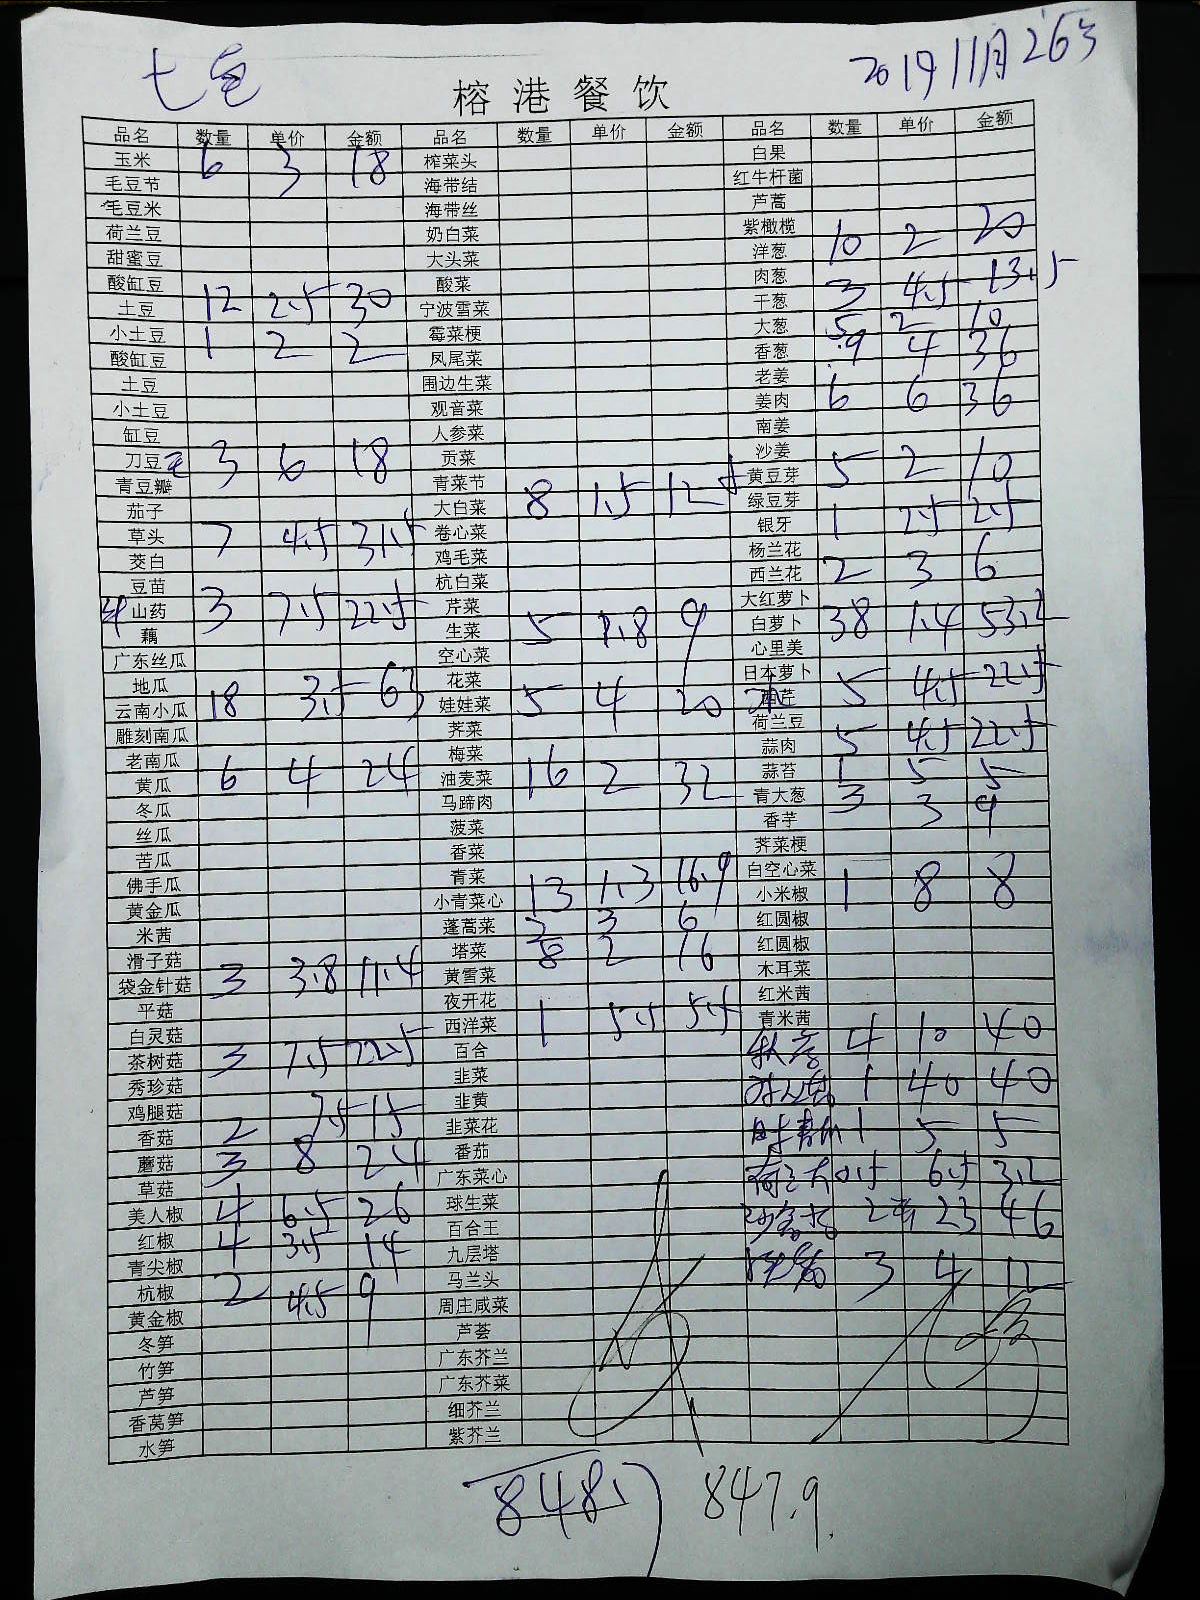 七宝
2019 11月26号
榕港餐饮
品名 数量 单价 金额 品名 数量 单价 金额 品名 数量 单价 金额
玉米 6 3 18 榨菜头 白果
毛豆节 海带结 红牛杆菌
毛豆米 海带丝 芦蒿
荷兰豆 奶白菜 紫橄榄
甜蜜豆 大头菜 洋葱 10 2 20
酸缸豆 酸菜 肉葱
土豆 12 2.5 30 宁波雪菜 干葱 3 4.5 13.5
小土豆 1 2 2 霉菜梗 大葱 5 2 10
酸缸豆 凤尾菜 香葱 9 4 36
土豆 围边生菜 老姜
小土豆 观音菜 姜肉 6 6 36
缸豆 人参菜 南姜
刀豆 3 6 18 贡菜 沙姜
青豆瓣 青菜节 黄豆芽 5 2 10
茄子 大白菜 8 1.5 12 绿豆芽
草头 7 4.5 31.5 卷心菜 银牙 1 2.5 2.5
茭白 鸡毛菜 杨兰花
豆苗 杭白菜 西兰花 2 3 6
山药 3 7.5 22.5 芹菜 大红萝卜
藕 生菜 5 1.8 9 白萝卜 38 1.4 53.2
广东丝瓜 空心菜 心里美
地瓜 花菜 日本萝卜
云南小瓜 18 3.5 63 娃娃菜 5 4 20 芹 5 4.5 22.5
雕刻南瓜 荠菜 荷兰豆
老南瓜 梅菜 蒜肉 5 4.5 22.5
黄瓜 6 4 24 油麦菜 16 2 32 蒜苔 1 5 5
冬瓜 马蹄肉 青大葱 3 3 9
丝瓜 菠菜 香芋
苦瓜 香菜 荠菜梗
佛手瓜 青菜 白空心菜
黄金瓜 小青菜心 13 1.3 16.9 小米椒 1 8 8
米茜 蓬蒿菜 2 3 6 红圆椒
滑子菇 塔菜 8 2 16 红圆椒
袋金针菇 3 3.8 11.4 黄雪菜 木耳菜
平菇 夜开花 红米茜
白灵菇 西洋菜 1 5.5 5.5 青米茜
茶树菇 3 7.5 22.5 百合 4 10 40
秀珍菇 韭菜 1 40 40
鸡腿菇 韭黄
香菇 2 7.5 15 韭菜花 1 5 5
蘑菇 3 8 24 番茄
草菇 广东菜心 0.5 6.5 3.2
美人椒 4 6.5 26 球生菜 2 23 46
红椒 4 3.5 14 百合王
青尖椒 九层塔 3 4 12
杭椒 2 4.5 9 马兰头
黄金椒 周庄咸菜
冬笋 芦荟
竹笋 广东芥兰
芦笋 广东芥菜
香莴笋 细芥兰
水笋 紫芥兰
848.1 847.9